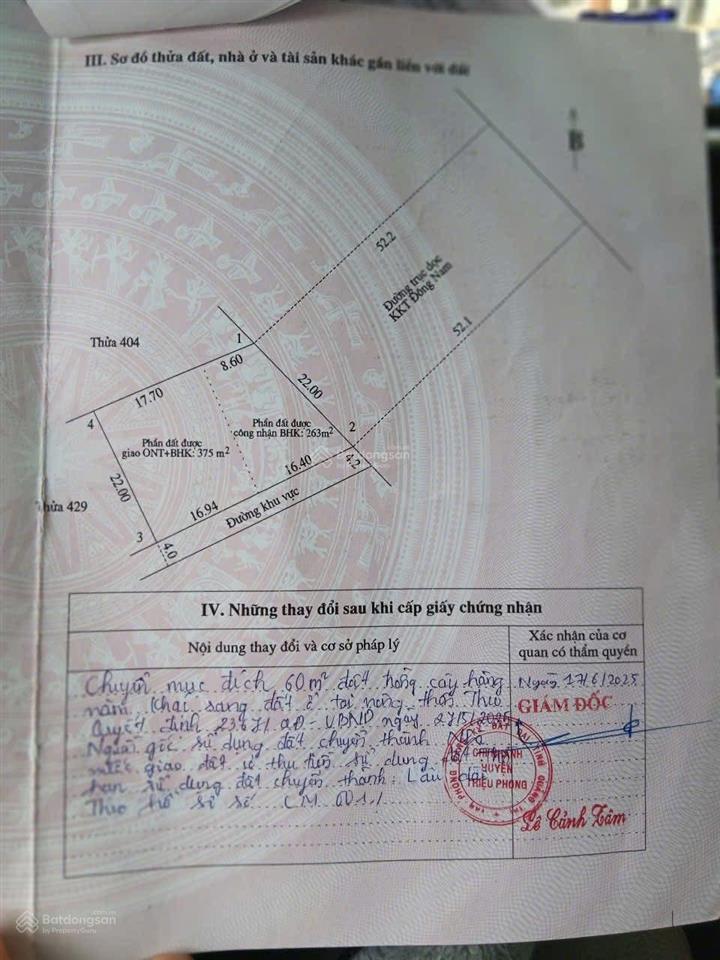 III. Sơ đồ thửa đất, nhà ở và tài sản khác gắn liền với đất
B
52.2
Đường trục dọc
KKT Đông Nam
52.1
Thửa 404
1
8.60
22.00
17.70
4
Phần đất được
công nhận BHK: 263m²
2
Phần đất được
giao ONT+BHK: 375 m²
4.2
16.40
22.00
Thửa 429
16.94
Đường khu vực
3
4.0
Batdongsan
IV. Những thay đổi sau khi cấp giấy chứng nhận
Nội dung thay đổi và cơ sở pháp lý
Xác nhận của cơ
quan có thẩm quyền
Chuyển mục đích 60m² đất trồng cây hàng
năm khác sang đất ở tại nông thôn Theo
Quyết định 2367/QĐ-UBND ngày
Nguồn gốc sử dụng đất chuyển thành
nước giao đất có thu tiền sử dụng đất
hạn sử dụng đất chuyển thành: Lâu dài
Theo hồ sơ số CM 001
Ngày 17/6/2025
GIÁM ĐỐC
CHI NHÁNH
HUYỆN
TRIỆU PHONG
Lê Cảnh Tâm
Batdongsan
by PropertyGuru